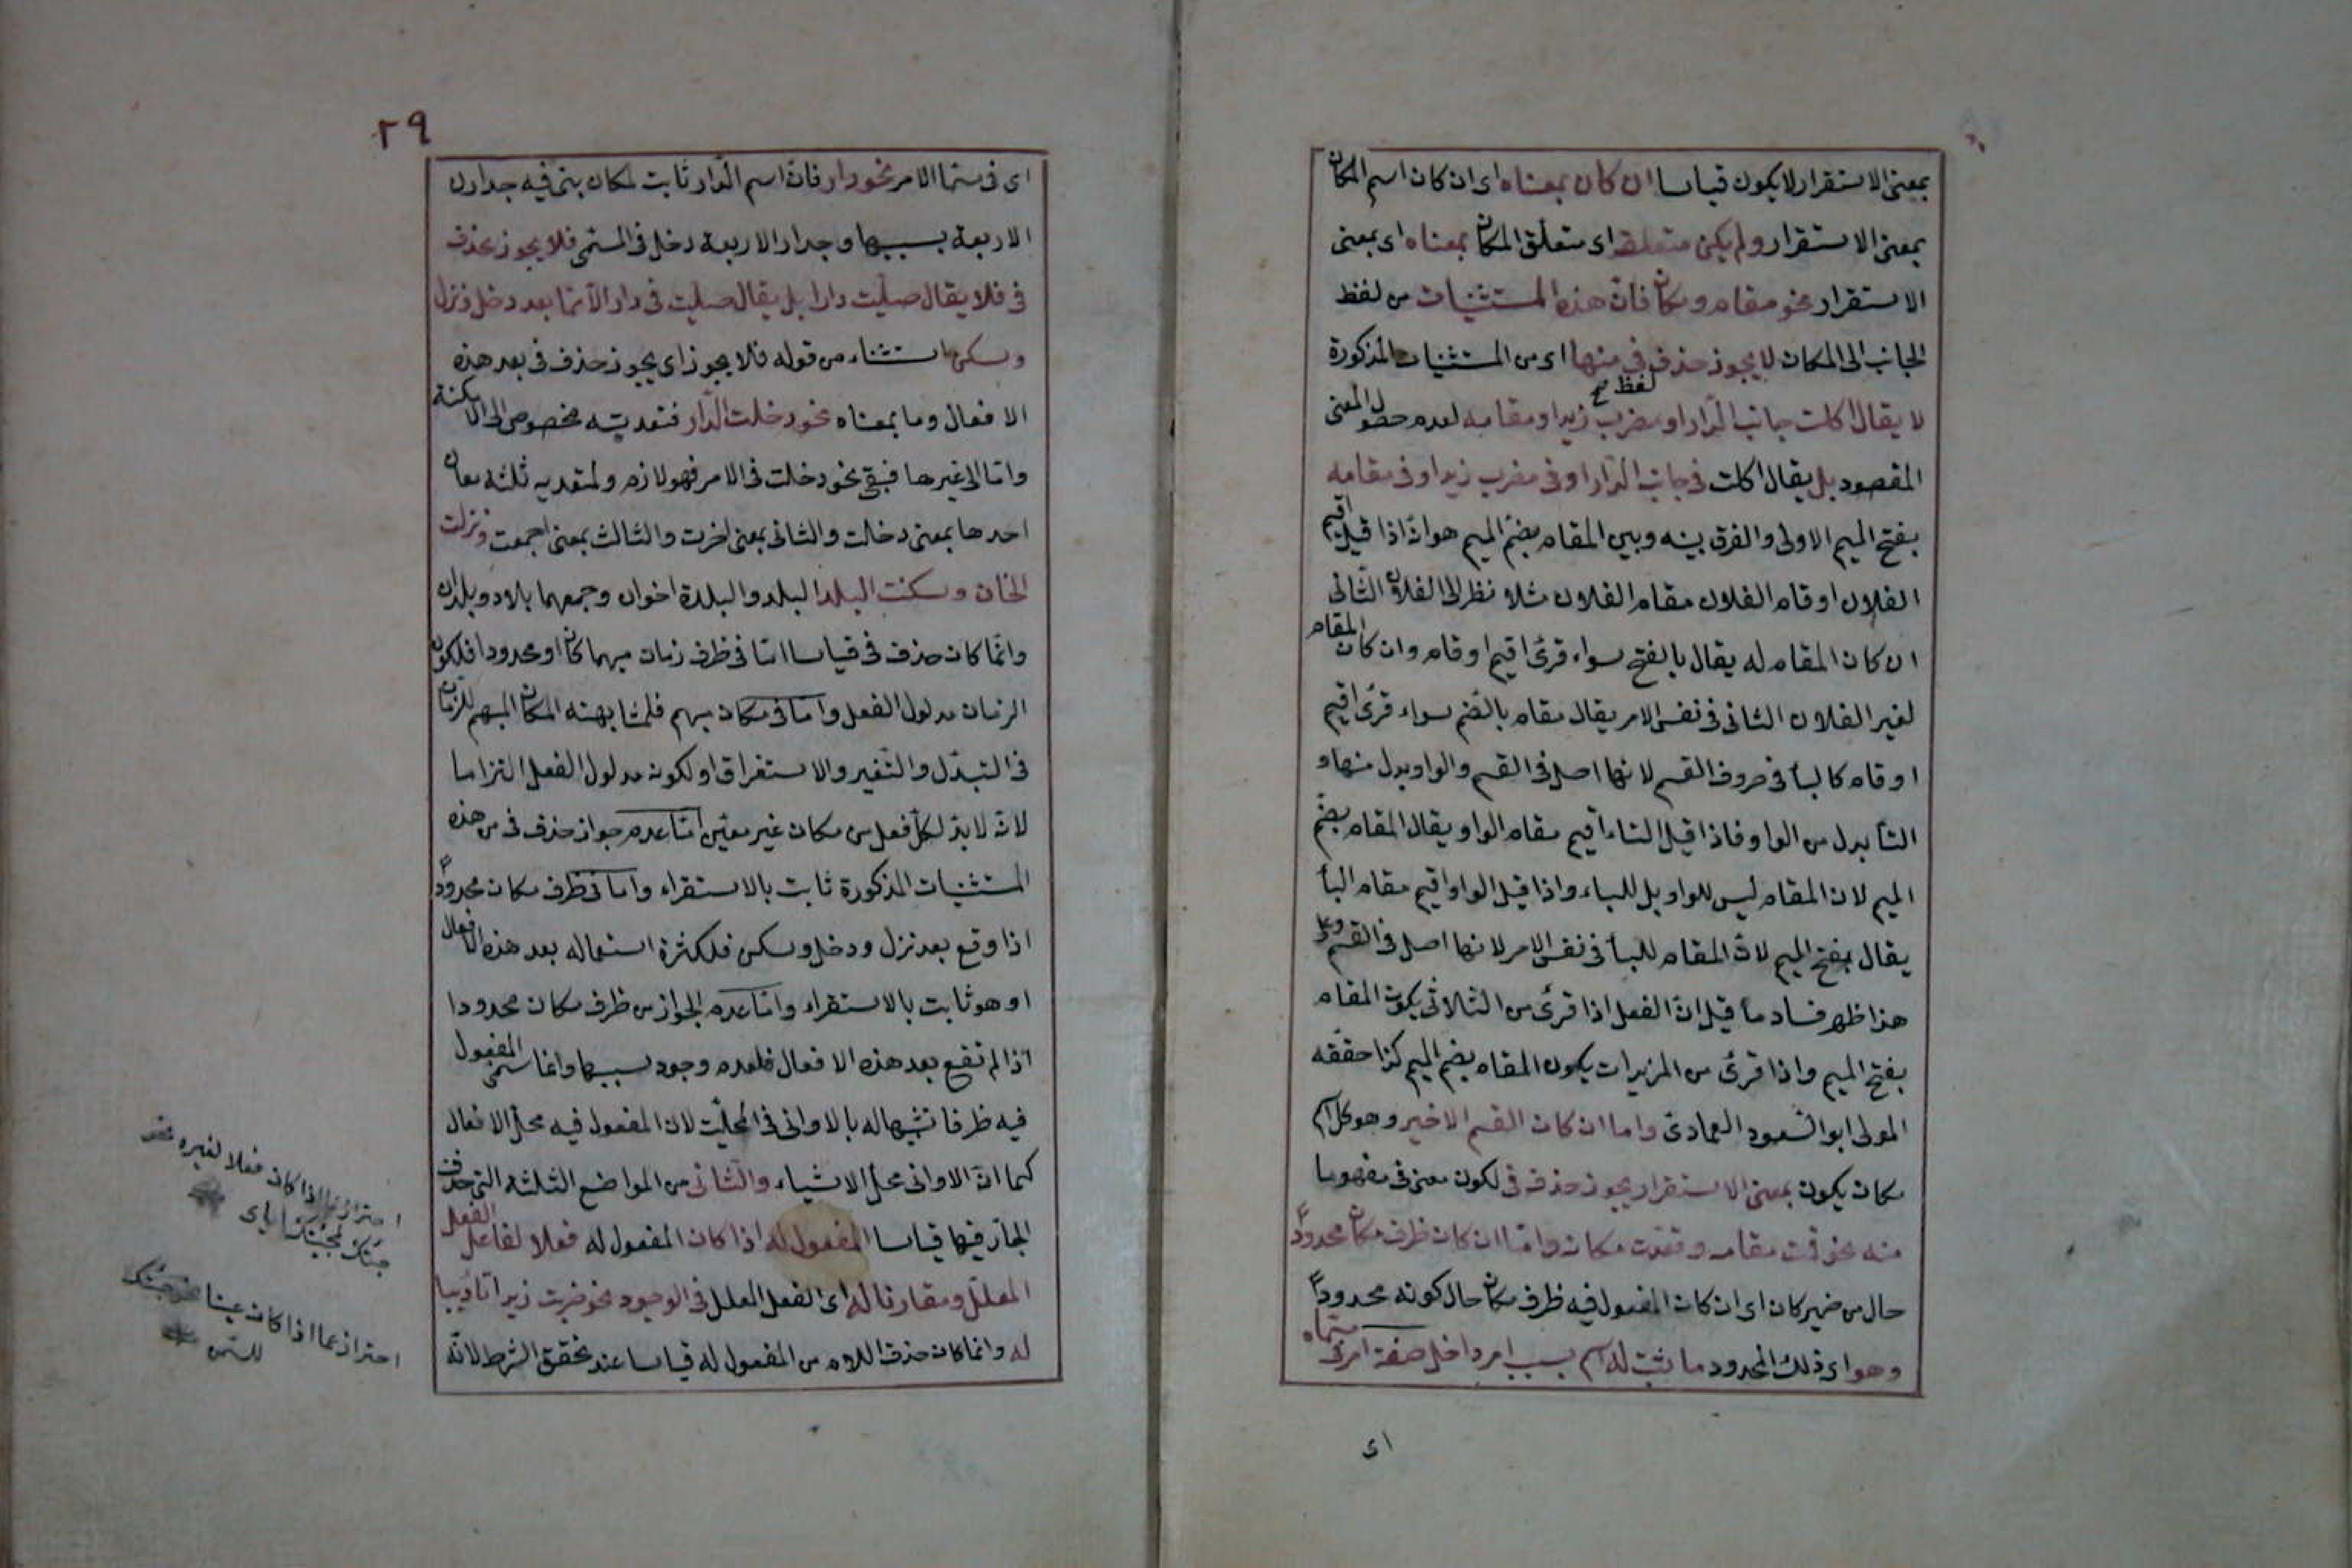 بمعنى الاستقرار لا يكون قياسا ان كان بمعناه اى ان كان اسم المكان
بمعنى الاستقرار ولم يكن متعلقه اى متعلق المكان بمعناه اى بمعنى
الاستقرار نحو مقام ومكان فان هذه المستثنيات من لفظ
الجانب الى المكان لا يجوز حذف فى منها اى من المستثنيات المذكورة
لا يقال اكلت جانب الدار او مضرب زيد او مقامه لعدم حصول المعنى
لفظ
المقصود بل يقال اكلت فى جانب الدار او فى مضرب زيد او فى مقامه
بفتح الميم الاولى والفرق بينه وبين المقام بضم الميم هو انّ اذا قيل اقيم
الفلان او قام الفلان مقام الفلان مثلا نظر الى الفلان الثانى
ان كان المقام له يقال بالفتح سواء قرئ اقيم او قام وان كان المقام
لغير الفلان الثانى فى نفس الامر يقال مقام بالضم سواء قرئ اقيم
او قام كالبأ فى حروف القسم لانها اصل فى القسم والواو بدل منها و
التأ بدل من الواو فاذا قيل التاء اقيم مقام الواو يقال المقام بضم
الميم لان المقام ليس للواو بل للباء واذا قيل الواو اقيم مقام البأ
يقال بفتح الميم لانّ المقام للبأ فى نفس الامر لانها اصل فى القسم وعلى
هذا ظهر فساد ما قيل انّ الفعل اذا قرئ من الثلاثى يكون المقام
بفتح الميم واذا قرئ من المزيدات يكون المقام بضم الميم كذا حققه
المولى ابو السعود العمادى واما ان كان القسم الاخير وهو كل اسم
مكان يكون بمعنى الاستقرار يجوز حذف فى لكون معنى فى مفهوما
منه نحو قمت مقامه وقعدت مكانه وامّا ان كان ظرف مكان محدودًا
حال من ضمير كان اى ان كان المفعول فيه ظرف مكان حال كونه محدودًا
وهو اى ذلك المحدود ما يثبت له اسم بسبب امر داخل صفة امر فى مسماه
اى
٢٩
اى فى مسمّا الامر نحو دار فانّ اسم الدّار ثابت لمكان بنى فيه جدارن
الاربعة بسببها وجدار الاربعة دخل فى المسمّى فلا يجوز حذف
فى فلا يقال صلّيت دارا بل يقال صلّيت فى دار الّا مما بعد دخل ونزل
وسكن استثناء من قوله فلا يجوز اى يجوز حذف فى بعد هذه
الافعال وما بمعناه نحو دخلت الدّار فتعديته مخصوص الى الامكنة
وامّا الى غيرها فبفى نحو دخلت فى الامر فهو لازم ولمتعديه ثلثه معان
احدها بمعنى دخلت والثانى بمعنى اخرت والثالث بمعنى اجمعت ونزلت
الخان وسكنت البلد البلد والبلدة اخوان وجمعهما بلاد وبلدان
وانّما كان حذف فى قياسا امّا فى ظرف زمان مبهما كان او محدودا فلكون
الزمان مدلول الفعل واما فى مكان مبهم فلمشابهته المكان المبهم للزمان
فى التبدّل والتّغير والاستغراق او لكونه مدلول الفعل التزاما
لانّه لا بدّ لكلّ فعل من مكان غير معيّن امّا عدم جواز حذف فى من هذه
المستثنيات المذكورة ثابت بالاستقراء واما فى ظرف مكان محدودًا
اذا وقع بعد نزل ودخل وسكن فلكثرة استعماله بعد هذه الافعال
او هو ثابت بالاستقراء وامّا عدم الجواز من ظرف مكان محدودا
اذا لم تقع بعد هذه الافعال فلعدم وجود سببها وانما سمّى المفعول
فيه ظرفا تشبيها له بالاوانى فى المحلّيت لان المفعول فيه محلّ الافعال
كما انّ الاوانى محلّ الاشياء والثّانى من المواضع الثلثه التى حذف
الجارّ فيها قياسا المفعول له اذا كان المفعول له فعلا لفاعل الفعل
المعلّل ومقارنا له اى الفعل المعلل فى الوجود نحو ضربت زيدا تأديبا
له وانما كان حذف اللام من المفعول له قياسا عند تحقق الشرط لانّه
احتراز عما اذا كان فعلا لغيره نحو
جئتك لمجيئك اياى
احتراز عما اذا كان عينا نحو جئتك
للسّمن